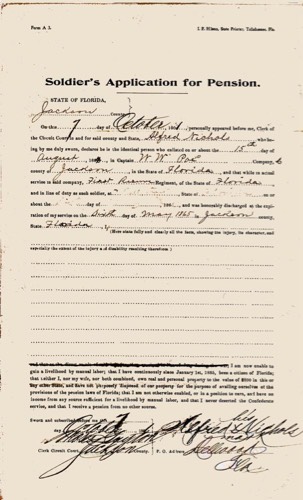 Form A 1. I. B. Hilson, State Printer, Tallahassee, Fla.
Soldier's Application for Pension.
STATE OF FLORIDA,
Jackson County.
On this 7 day of October 1, personally appeared before me, Clerk of
the Circuit Court in and for said county and State, Alfred Nichols who be-
ing by me duly sworn, declares he is the identical person who enlisted on or about the 15th day of
August in Captain W. W. Poe Company
county of Jackson in the State of Florida, and that while in actual
service in said company, First Reserve Regiment, of the State of Florida
and in line of duty as enlisted soldier, at on or
about the day of 186 , and was honorably discharged at the expir-
ation of my service on the Sixth day of May 1865 in Jackson county,
State Florida
(Here state fully and clearly all the facts, showing the injury, its character, and
especially the extent of the injury and disability therefrom.)
I am now unable to
gain a livelihood by manual labor; that I have continuously since January 1st, been a citizen of Florida;
that neither I, nor my wife, nor both combined, own real and personal property to the value of in this or
any other State, and have not purposely disposed of our property for the purpose of availing ourselves of the
provisions of the pension laws of Florida; that I am not otherwise enabled, or in a position to earn, and have no
income from any source sufficient for a livelihood by manual labor, and that I never deserted the Confederate
service, and that I receive a pension from no other source.
Sworn and subscribed 7 his
day Alfred x Nichols
mark
Clerk Circuit Court, Jackson County. P. O. Address, Dellwood
Fla